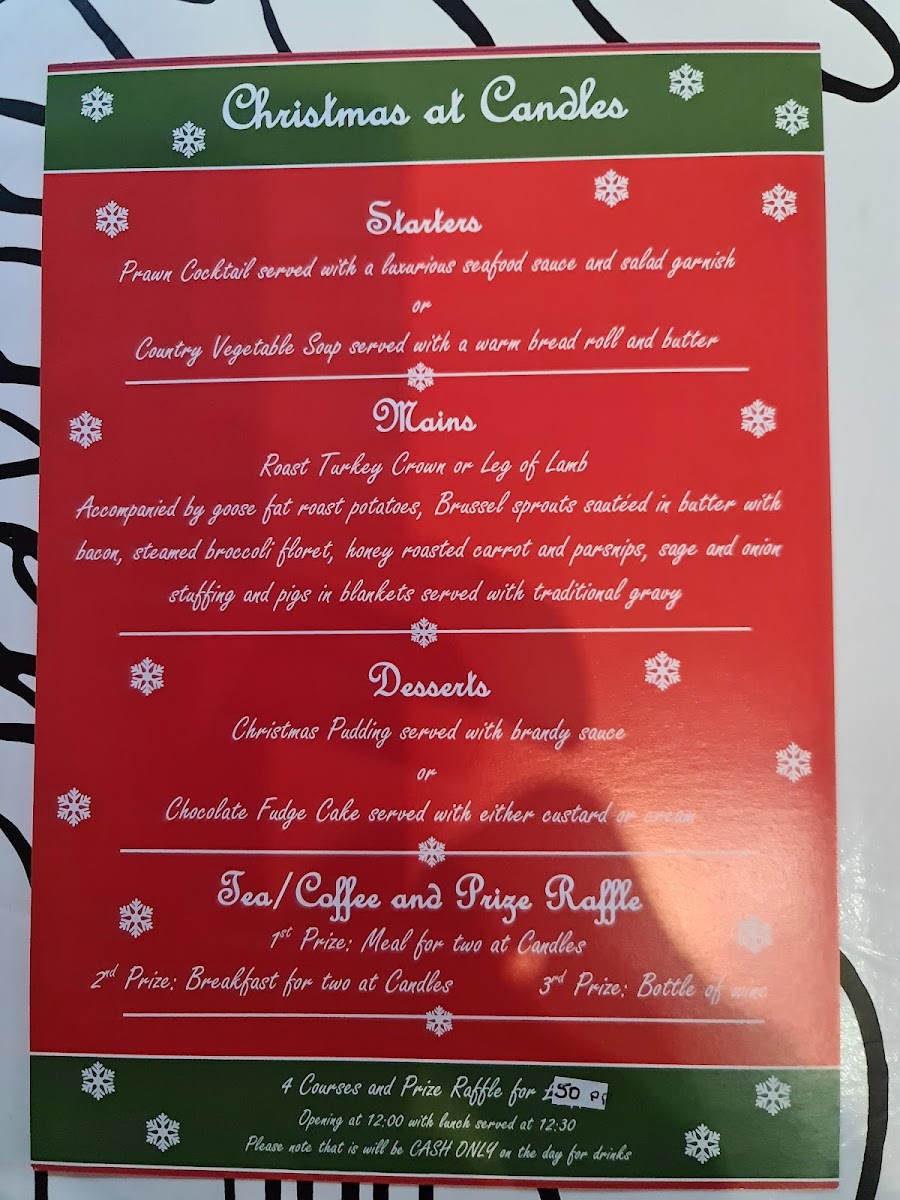 Christmas at Candles
Starters
Prawn Cocktail served with a luxurious seafood sauce and salad garnish
or
Country Vegetable Soup served with a warm bread roll and butter
Mains
Roast Turkey Crown or Leg of Lamb
Accompanied by goose fat roast potatoes, Brussel sprouts sautéed in butter with
bacon, steamed broccoli floret, honey roasted carrot and parsnips, sage and onion
stuffing and pigs in blankets served with traditional gravy
Desserts
Christmas Pudding served with brandy sauce
or
Chocolate Fudge Cake served with either custard or cream
Tea/Coffee and Prize Raffle
1st Prize: Meal for two at Candles
2nd Prize: Breakfast for two at Candles 3rd Prize: Bottle of wine
4 Courses and Prize Raffle for £50
Opening at 12:00 with lunch served at 12:30
Please note that is will be CASH ONLY on the day for drinks